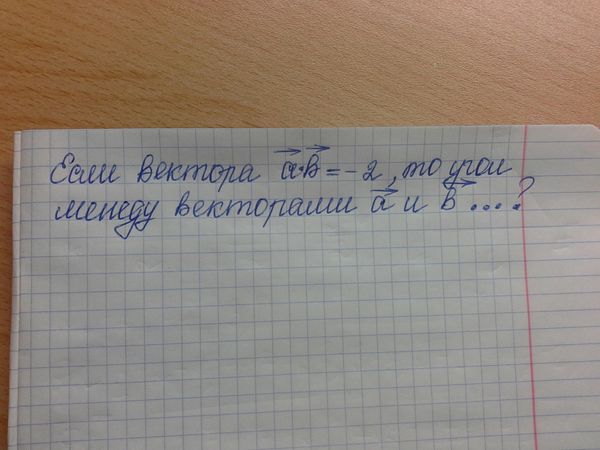 Если вектора a⃗·b⃗ = -2, то угол
между векторами a⃗ и b⃗ ....?